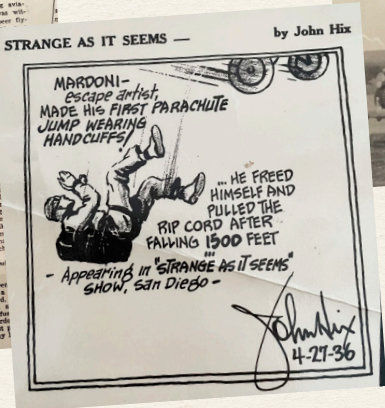 STRANGE AS IT SEEMS —
by John Hix
MARDONI-
escape artist,
MADE HIS FIRST PARACHUTE
JUMP WEARING
HANDCUFFS!
... HE FREED
HIMSELF AND
PULLED THE
RIP CORD AFTER
FALLING 1500 FEET
...
- Appearing in "STRANGE AS IT SEEMS"
SHOW, San Diego -
John Hix
4-27-36